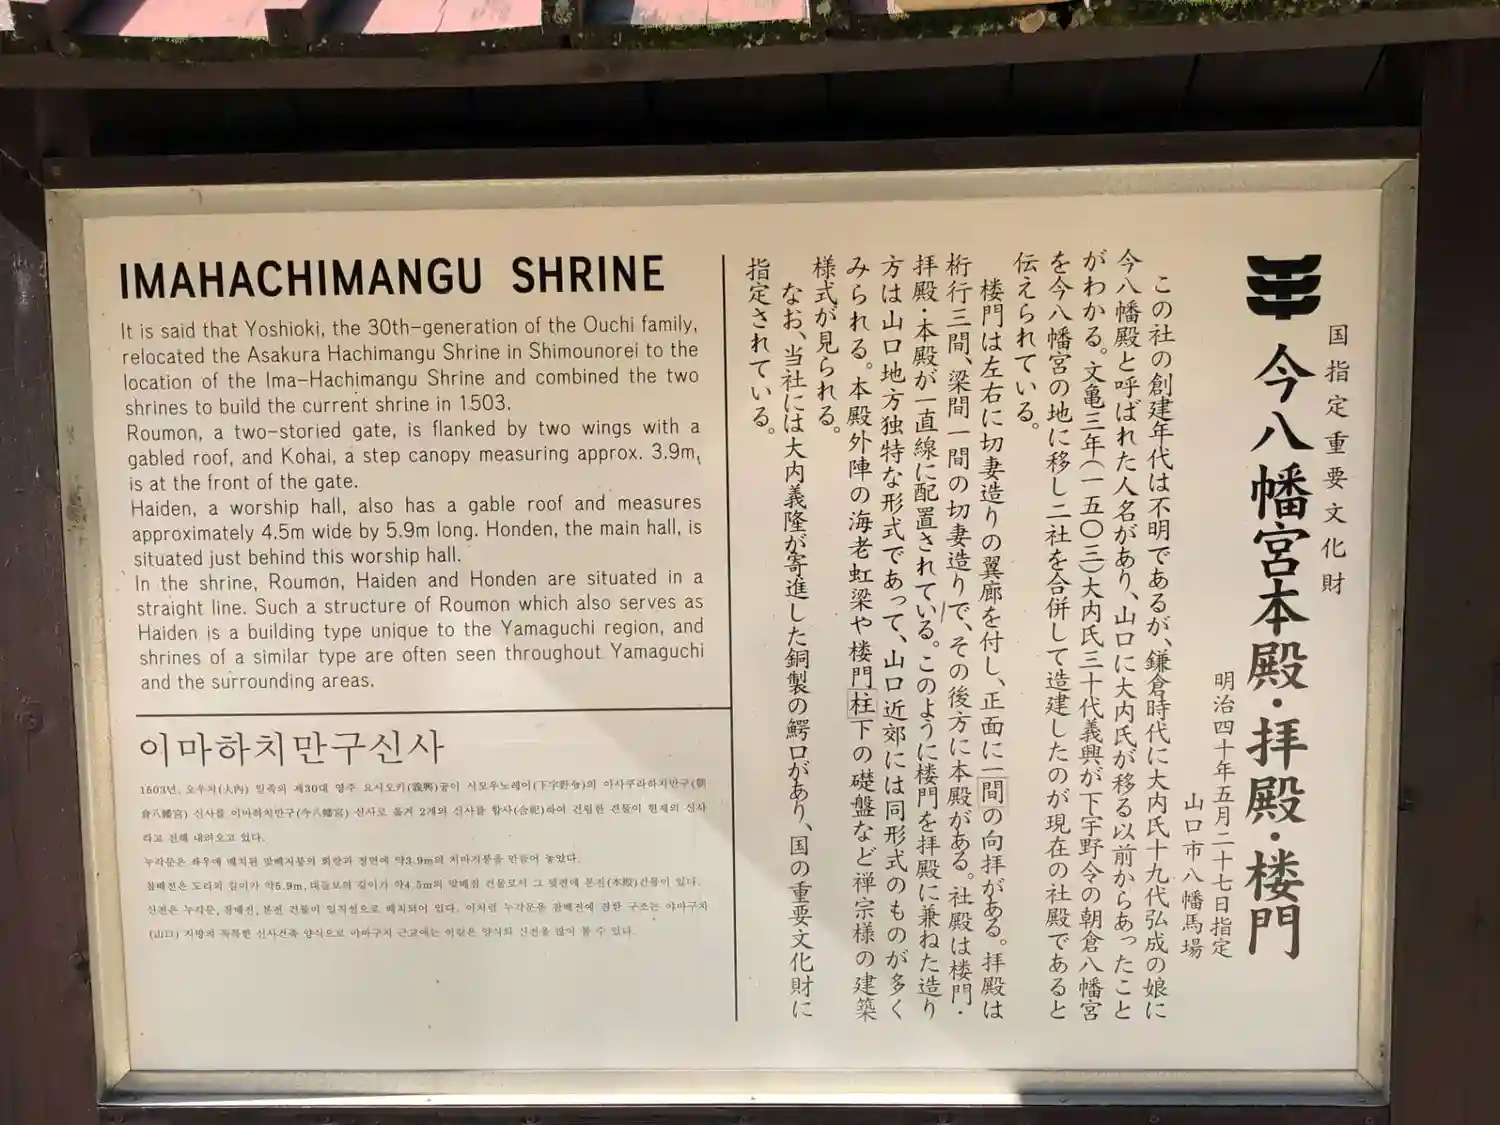 国指定重要文化財
今八幡宮本殿・拝殿・楼門
明治四十年五月二十七日指定
山口市八幡馬場
この社の創建年代は不明であるが、鎌倉時代に大内氏十九代弘成の娘に
今八幡殿と呼ばれた人名があり、山口に大内氏が移る以前からあったこと
がわかる。文亀三年(一五〇三)大内氏三十代義興が下宇野令の朝倉八幡宮
を今八幡宮の地に移し二社を合併して造建したのが現在の社殿であると
伝えられている。
楼門は左右に切妻造りの翼廊を付し、正面に一間の向拝がある。拝殿は
桁行三間、梁間一間の切妻造りで、その後方に本殿がある。社殿は楼門・
拝殿・本殿が一直線に配置されている。このように楼門を拝殿に兼ねた造り
方は山口地方独特な形式であって、山口近郊には同形式のものが多く
みられる。本殿外陣の海老虹梁や楼門柱下の礎盤など禅宗様の建築
様式が見られる。
なお、当社には大内義隆が寄進した銅製の鰐口があり、国の重要文化財に
指定されている。
IMAHACHIMANGU SHRINE
It is said that Yoshioki, the 30th-generation of the Ouchi family,
relocated the Asakura Hachimangu Shrine in Shimounorei to the
location of the Ima-Hachimangu Shrine and combined the two
shrines to build the current shrine in 1503.
Roumon, a two-storied gate, is flanked by two wings with a
gabled roof, and Kohai, a step canopy measuring approx. 3.9m,
is at the front of the gate.
Haiden, a worship hall, also has a gable roof and measures
approximately 4.5m wide by 5.9m long. Honden, the main hall, is
situated just behind this worship hall.
In the shrine, Roumon, Haiden and Honden are situated in a
straight line. Such a structure of Roumon which also serves as
Haiden is a building type unique to the Yamaguchi region, and
shrines of a similar type are often seen throughout Yamaguchi
and the surrounding areas.
이마하치만구신사
1503년, 오우치(大内) 일족의 제30대 영주 요시오키(義興)공이 시모우노레이(下宇野令)의 아사쿠라하치만구(朝
倉八幡宮) 신사를 이마하치만구(今八幡宮) 신사로 옮겨 2개의 신사를 합사(合祀)하여 건립한 건물이 현재의 신사
라고 전해 내려오고 있다.
누각문은 좌우에 배치된 맞배지붕의 회랑과 정면에 약3.9m의 처마지붕을 만들어 놓았다.
참배전은 도리의 길이가 약5.9m, 대들보의 길이가 약4.5m의 맞배집 건물로서 그 뒷편에 본전(本殿)건물이 있다.
신전은 누각문, 참배전, 본전 건물이 일직선으로 배치되어 있다. 이처럼 누각문을 참배전에 겸한 구조는 야마구치
(山口) 지방의 독특한 신사건축 양식으로 야마구치 근교에는 이같은 양식의 신전을 많이 볼 수 있다.